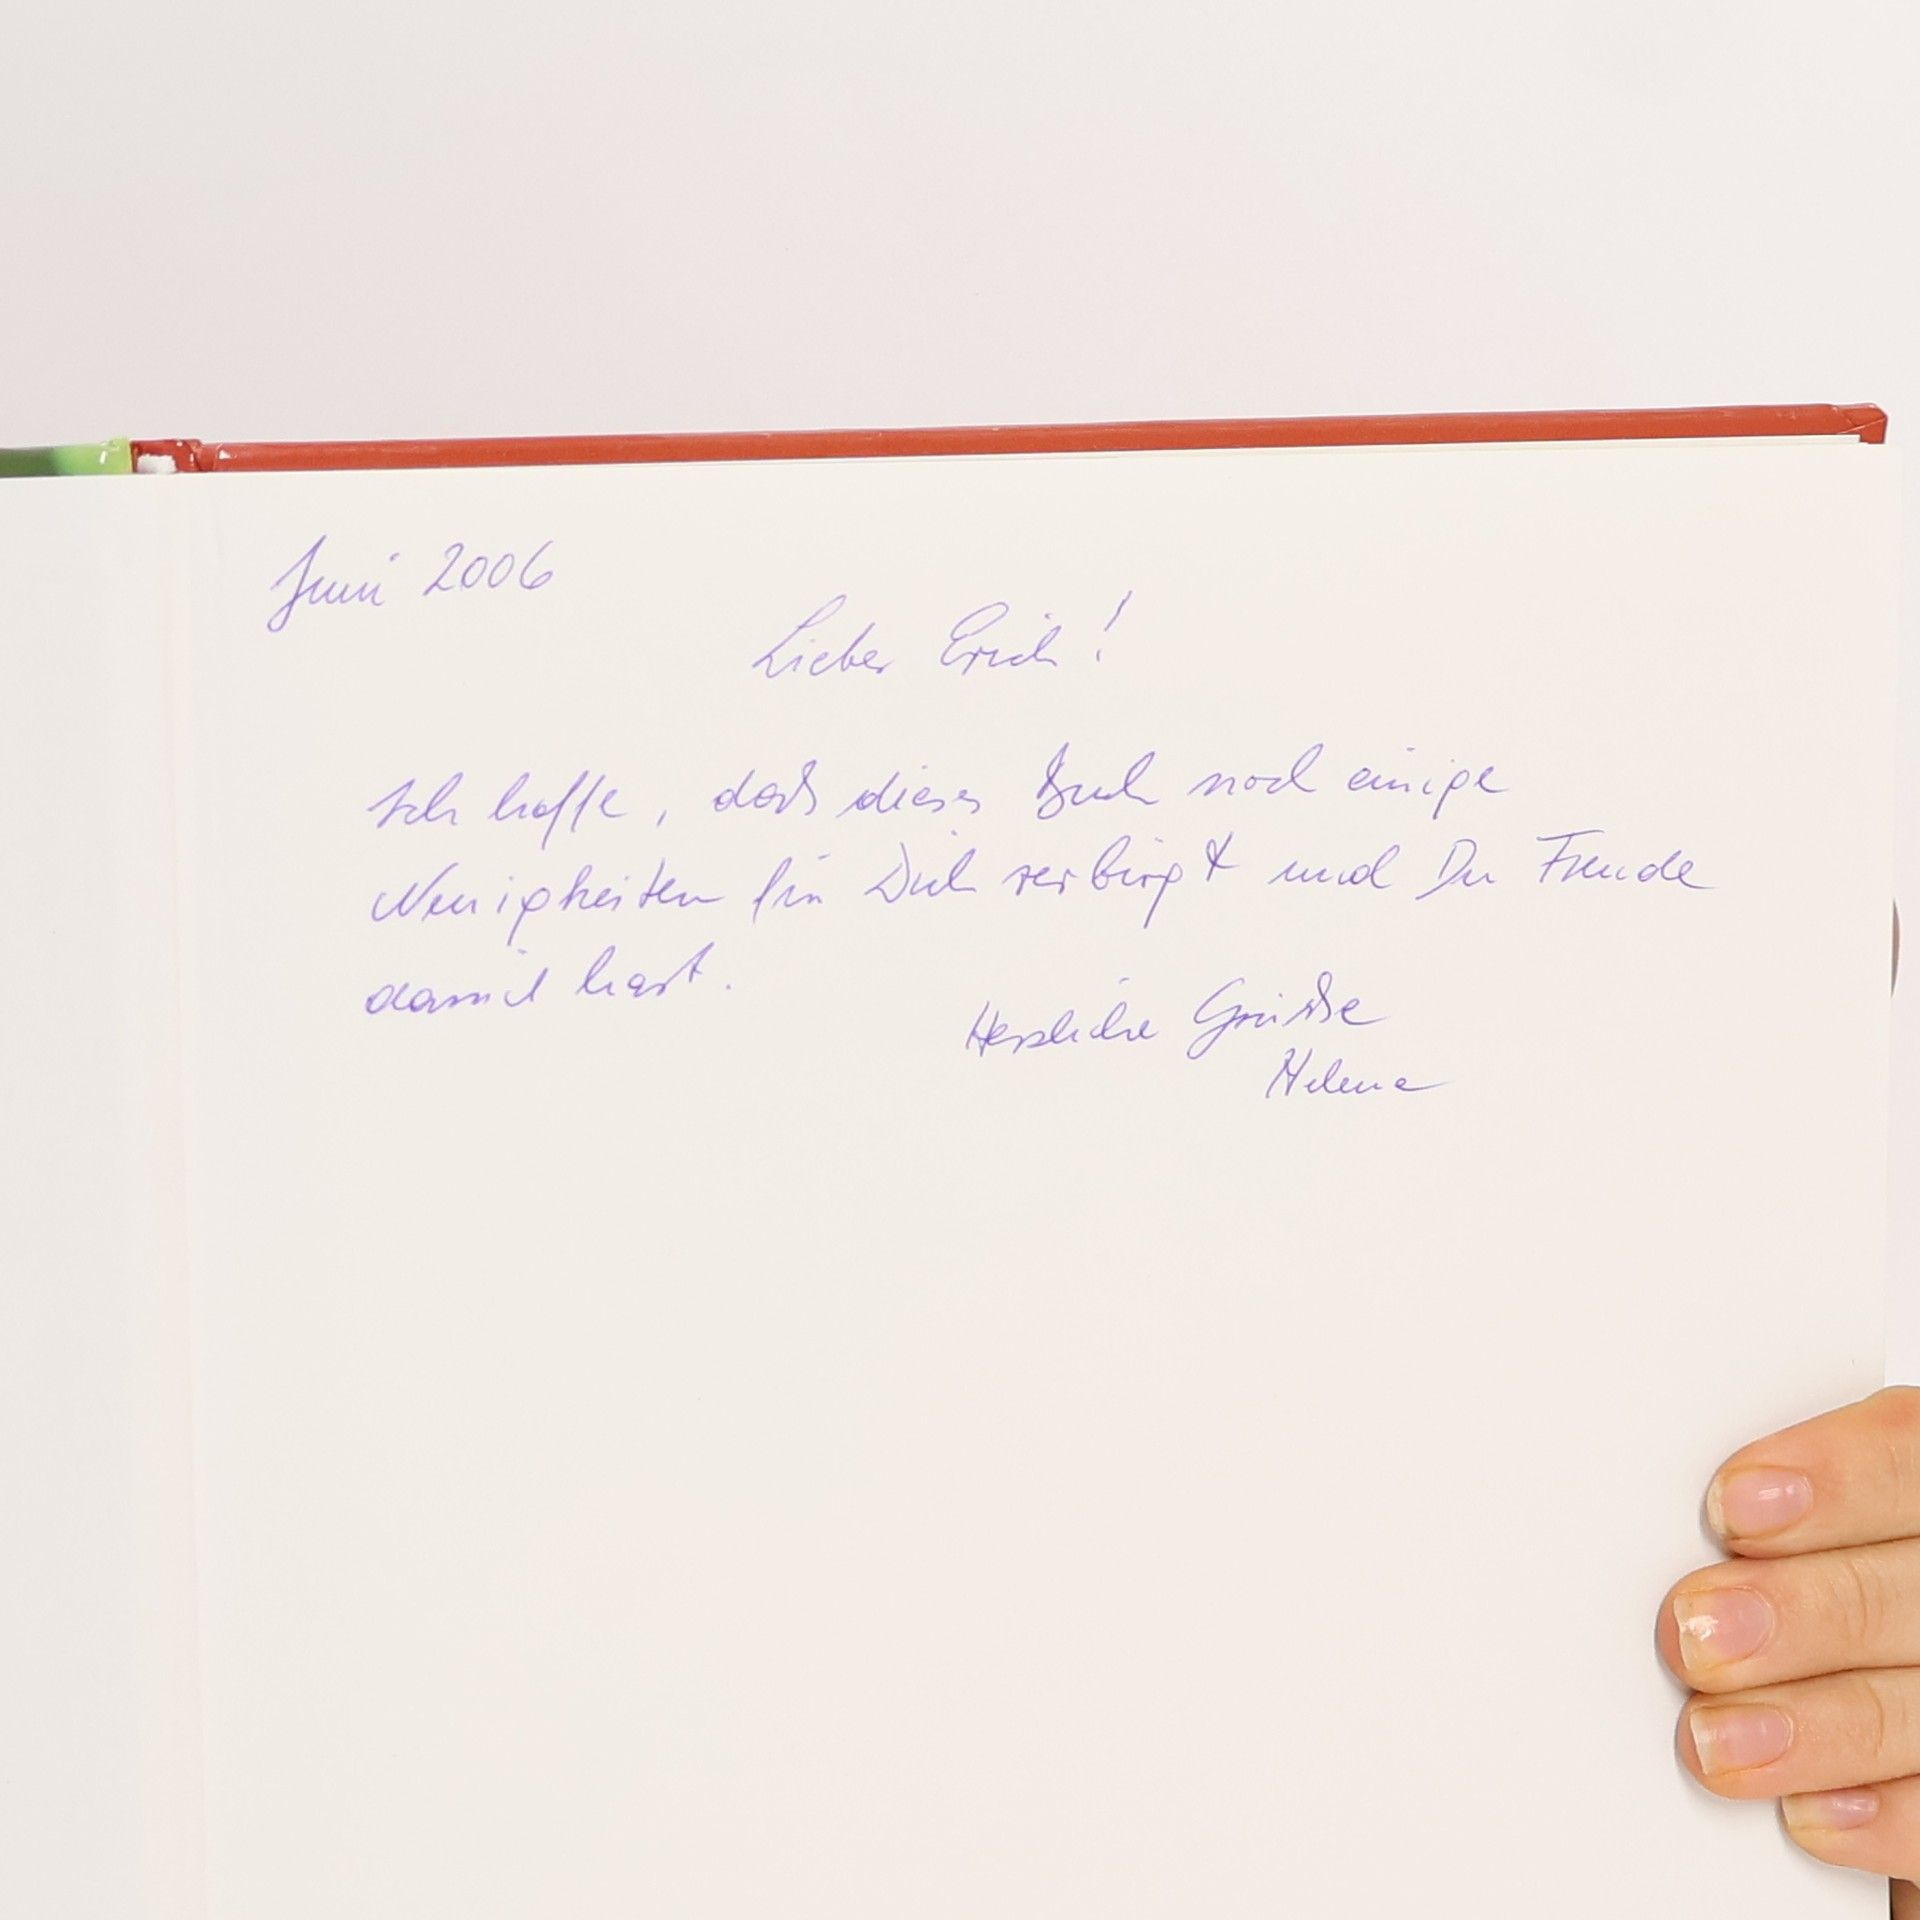 Juni 2006
Lieber Erich!
Ich hoffe, dass dieses Buch noch einige
Neuigkeiten für Dich verbirgt und Du Freude
damit hast.
Herzliche Grüsse
Helena